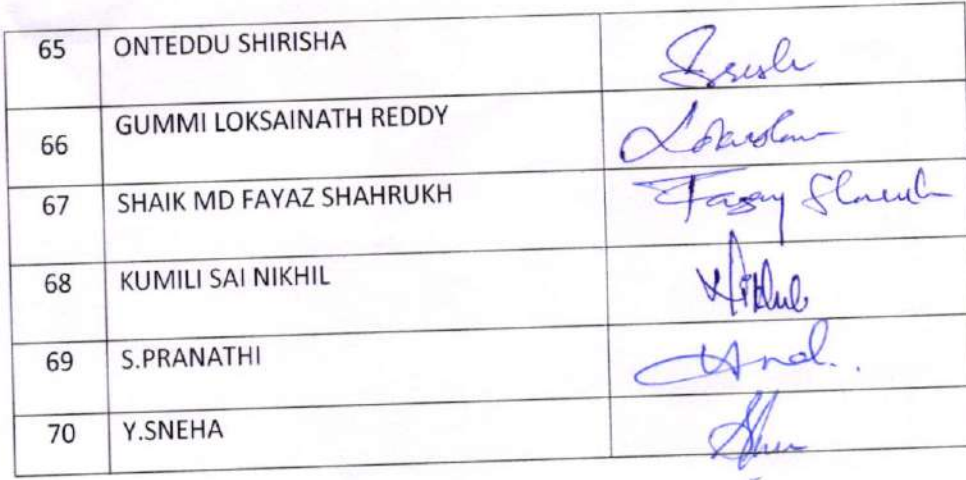 65 ONTEDDU SHIRISHA
66 GUMMI LOKSAINATH REDDY
67 SHAIK MD FAYAZ SHAHRUKH
68 KUMILI SAI NIKHIL
69 S.PRANATHI
70 Y.SNEHA